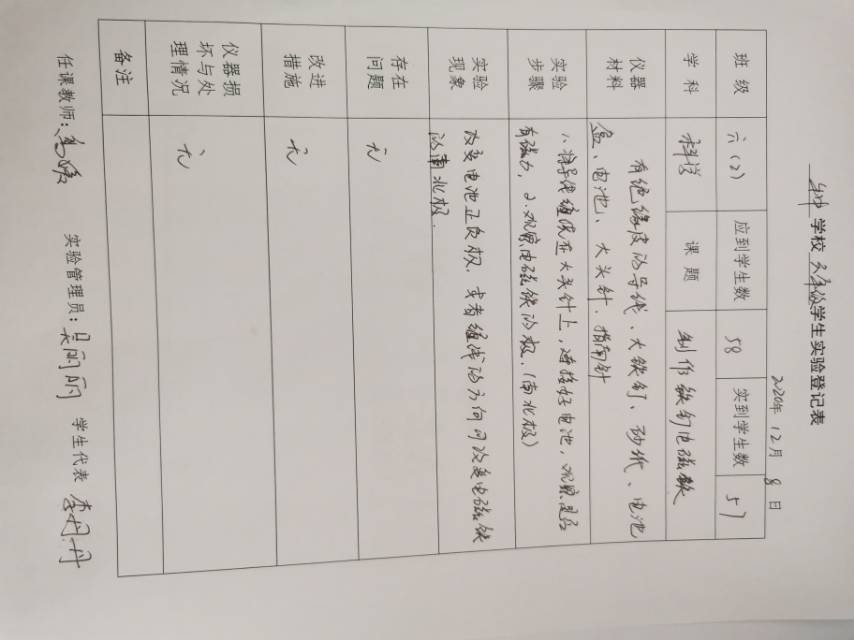 学校 六年级学生实验登记表
2020年 12月 8日
班级 六(2) 应到学生数 58 实到学生数 57
学科 科学 课题 制作铁钉电磁铁
仪器材料 有绝缘皮的导线、大铁钉、砂纸、电池
盒、电池、大头针、指南针
实验步骤 1、将导线缠绕在大头针上,连接好电池,观察是否
有磁力，2.观察电磁铁的极.(南北极)
实验现象 改变电池正负极.或者缠线的方向可改变电磁铁
的南北极.
存在问题 无
改进措施 无
仪器损坏与处理情况 无
备注
任课教师: 实验管理员:吴丽丽 学生代表 李丹丹